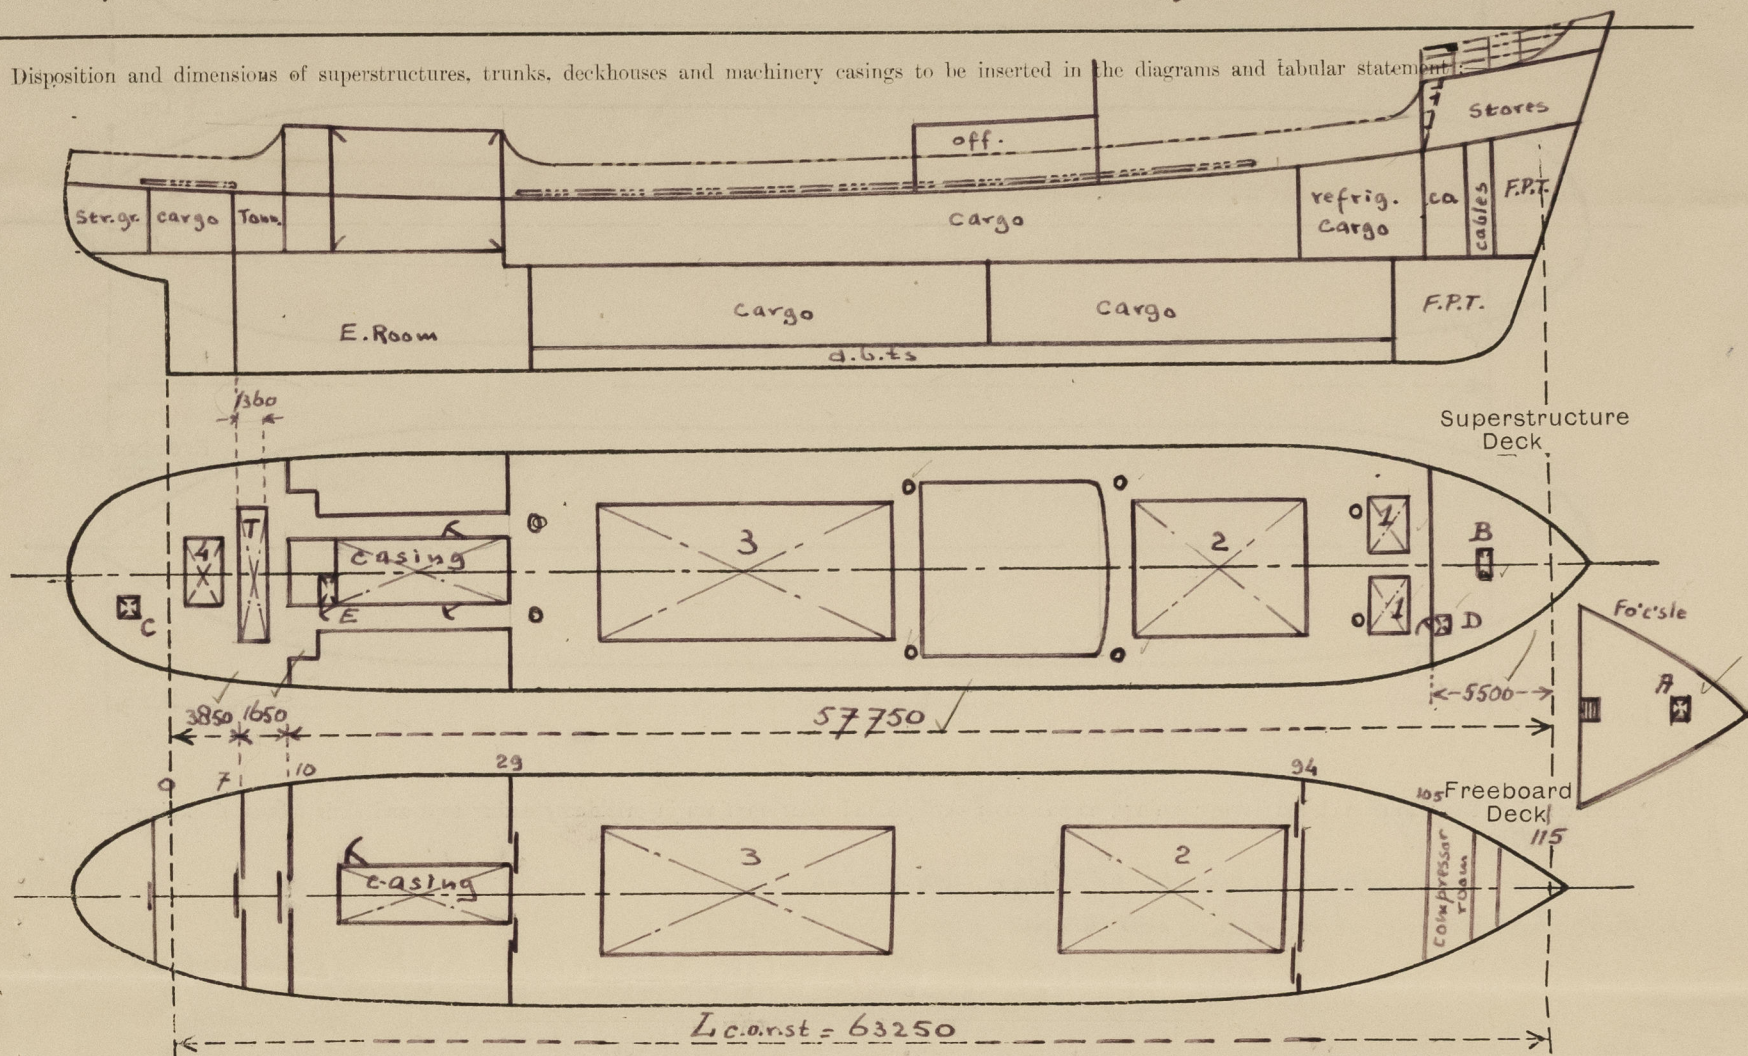 Disposition and dimensions of superstructures, trunks, deckhouses and machinery casings to be inserted in the diagrams and tabular statement:—
Stores
off.
Str.gr. cargo Tonn. cargo refrig. cargo ca cables F.P.T.
E.Room cargo cargo F.P.T.
d.b.ts
1360
Superstructure
Deck
4 T casing 3 2 1 B
C E 1 D
Fo'c'sle
A
3850 1650 57750 5500
0 7 10 29 94 105 Freeboard
Deck
115
casing 3 2 compressor room
L const = 63250